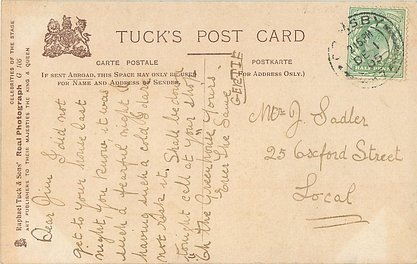 TUCK'S POST CARD
CARTE POSTALE
POSTKARTE
IF SENT ABROAD, THIS SPACE MAY ONLY BE USED
FOR NAME AND ADDRESS OF SENDER.
(FOR ADDRESS ONLY.)
CELEBRITIES OF THE STAGE
Raphael Tuck & Sons' Real Photograph G 106
ART PUBLISHERS TO THEIR MAJESTIES THE KING & QUEEN
Dear Jim I did not
get to your house last
night, you know it was
such a fearful night &
having such a cold I dare
not risk it. Shall be down
tonight call at your shop
Oh the Yours
Ever the Same
GERTIE
Mr J. Sadler
25 Oxford Street
Local